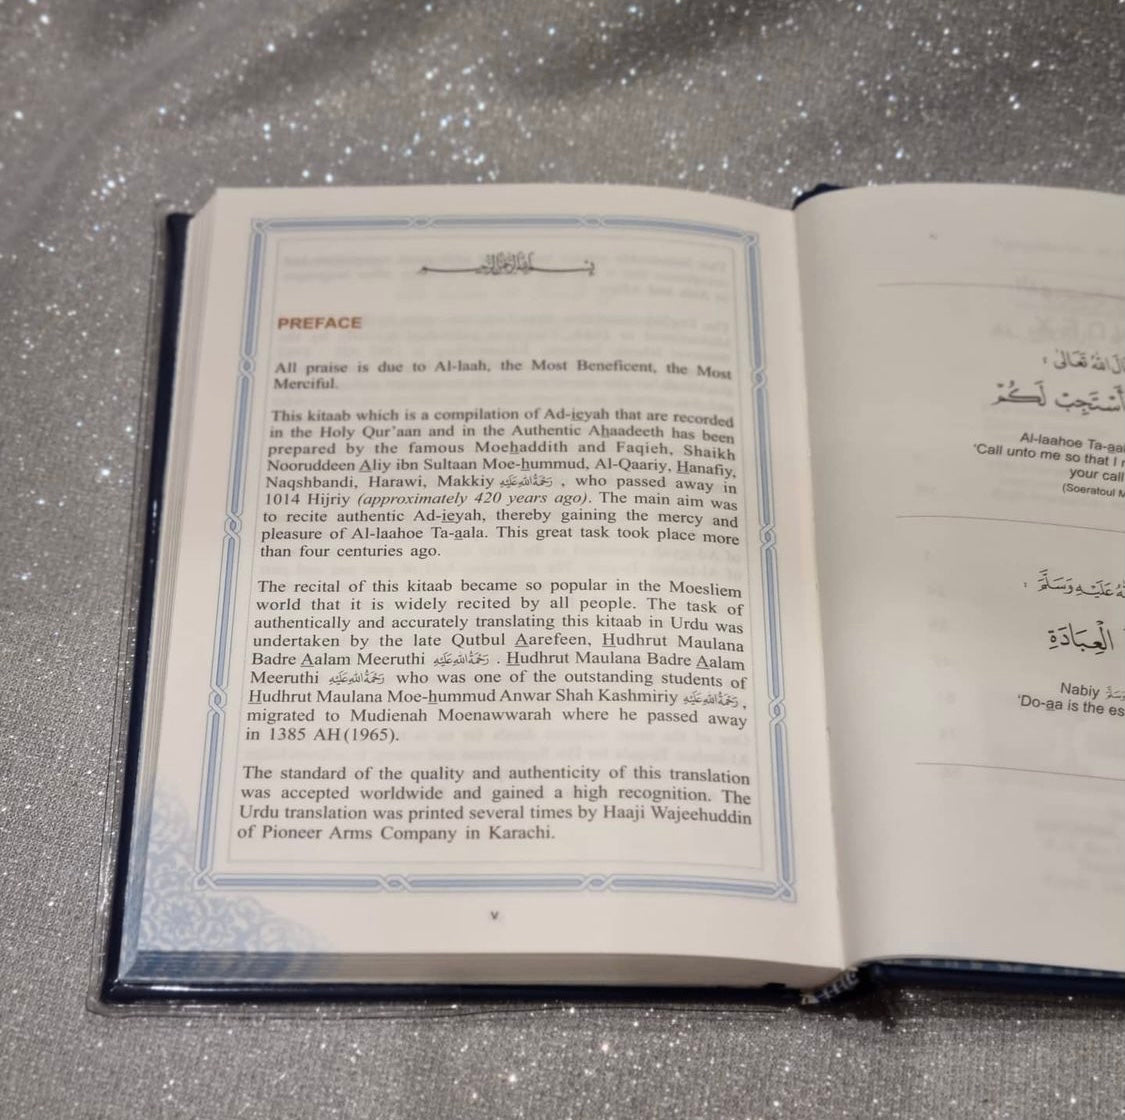 بسم الله الرحمن الرحيم
PREFACE
All praise is due to Al-laah, the Most Beneficent, the Most
Merciful.
This kitaab which is a compilation of Ad-ieyah that are recorded
in the Holy Qur'aan and in the Authentic Ahaadeeth has been
prepared by the famous Moehaddith and Faqieh, Shaikh
Nooruddeen Aliy ibn Sultaan Moe-hummud, Al-Qaariy, Hanafiy,
Naqshbandi, Harawi, Makkiy رحمة الله عليه , who passed away in
1014 Hijriy (approximately 420 years ago). The main aim was
to recite authentic Ad-ieyah, thereby gaining the mercy and
pleasure of Al-laahoe Ta-aala. This great task took place more
than four centuries ago.
The recital of this kitaab became so popular in the Moesliem
world that it is widely recited by all people. The task of
authentically and accurately translating this kitaab in Urdu was
undertaken by the late Qutbul Aarefeen, Hudhrut Maulana
Badre Aalam Meeruthi رحمة الله عليه . Hudhrut Maulana Badre Aalam
Meeruthi رحمة الله عليه who was one of the outstanding students of
Hudhrut Maulana Moe-hummud Anwar Shah Kashmiriy رحمة الله عليه ,
migrated to Mudienah Moenawwarah where he passed away
in 1385 AH (1965).
The standard of the quality and authenticity of this translation
was accepted worldwide and gained a high recognition. The
Urdu translation was printed several times by Haaji Wajeehuddin
of Pioneer Arms Company in Karachi.
v
الله تعالى :
أَسْتَجِبْ لَكُمْ
Al-laahoe Ta-aa
'Call unto me so that I
your call
(Soeratoul M
عَلَيْهِ وَسَلَّمَ :
الْعِبَادَةِ
Nabiy
'Do-aa is the es